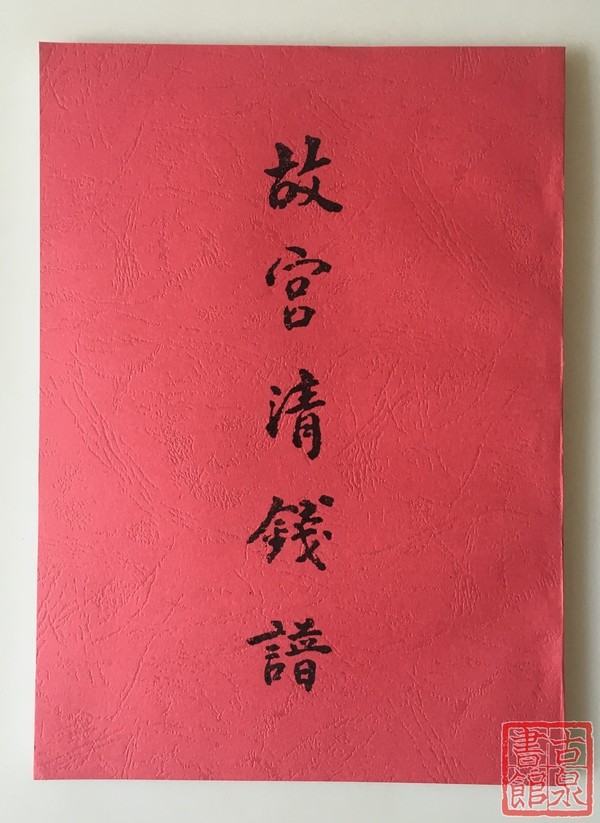 故宮清錢譜
古泉
書館